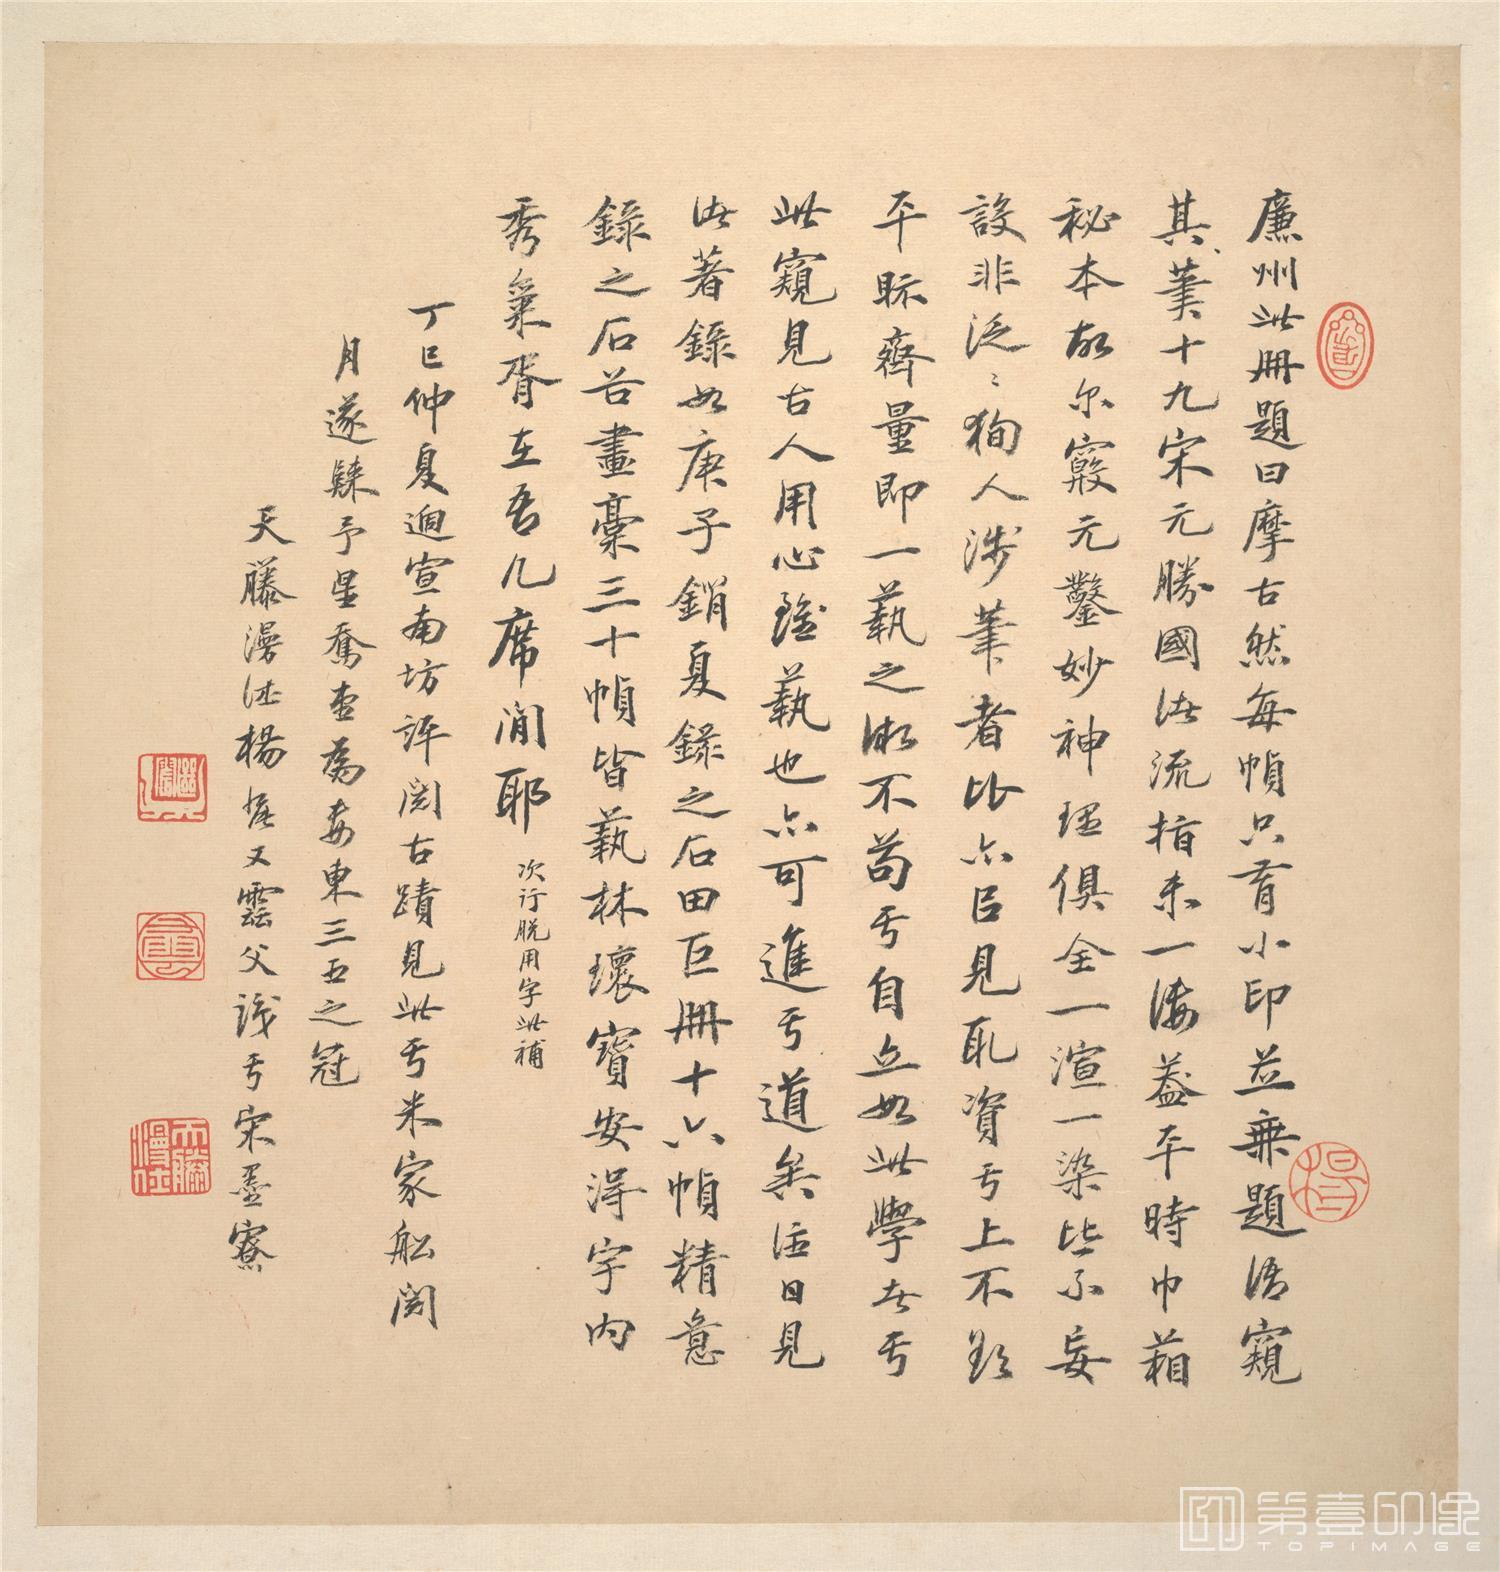 廉州此冊題曰摩古然每幀只有小印並無題語窺
其筆十九宋元勝國法流指未一僂蓋平時巾箱
秘本故尔窾元鑿妙神理俱全一渲一染皆不妄
設非泛〻狥人涉筆者比亦㠯見取資于上不欺
平眎齊量即一藝之微不苟于自立如此學者于
此窺見古人用心雖藝也亦可進于道矣往日見
法著錄如庚子銷夏錄之石田巨冊十六幀精意
錄之石谷畫稾三十幀皆藝林瓌寶安得宇内
秀氣胥在吾几席間耶
次行脱用字此補
丁巳仲夏迺宣南坊評閱古蹟見此于米家船閱
月遂歸予星奪壺為海東三五之冠
天藤漫士楊 又雲父識于宋墨寮
天藤漫士
第壹印像
TOPIMAGE